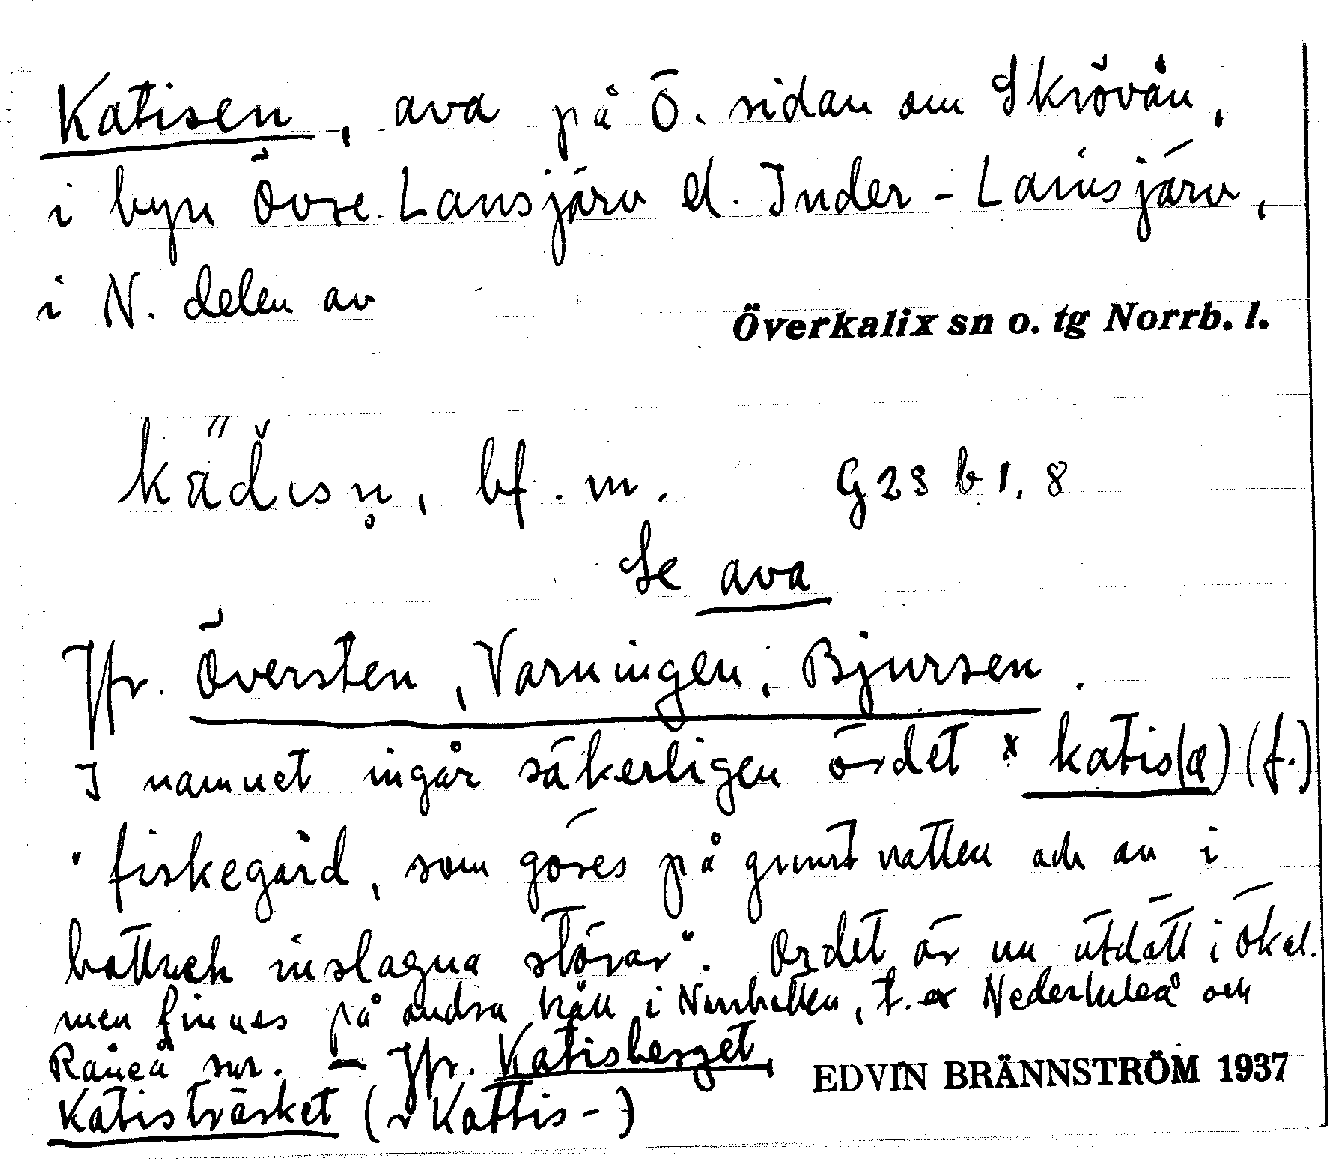 Katisen, ava på Ö. sidan om Skrövån,
i byn Övre Lansjärv el. Inder-Lansjärv,
i N. delen av
Överkalix sn o. tg Norrb. l.
bf. m. G 23 b 1, 8
Se ava
Jfr. Översten, Varningen, Bjursen.
I namnet ingår säkerligen ordet * katis(a) (f.)
"fiskegård, som göres på grunt vatten och av i
bottnen inslagna störar". Ordet är nu utdött i Ökal.
men finnes på andra håll i Norrbotten, t. ex Nederluleå och
Råneå snr. – Jfr. Katisberget,
EDVIN BRÄNNSTRÖM 1937
Katisträsket (~ Kattis-)